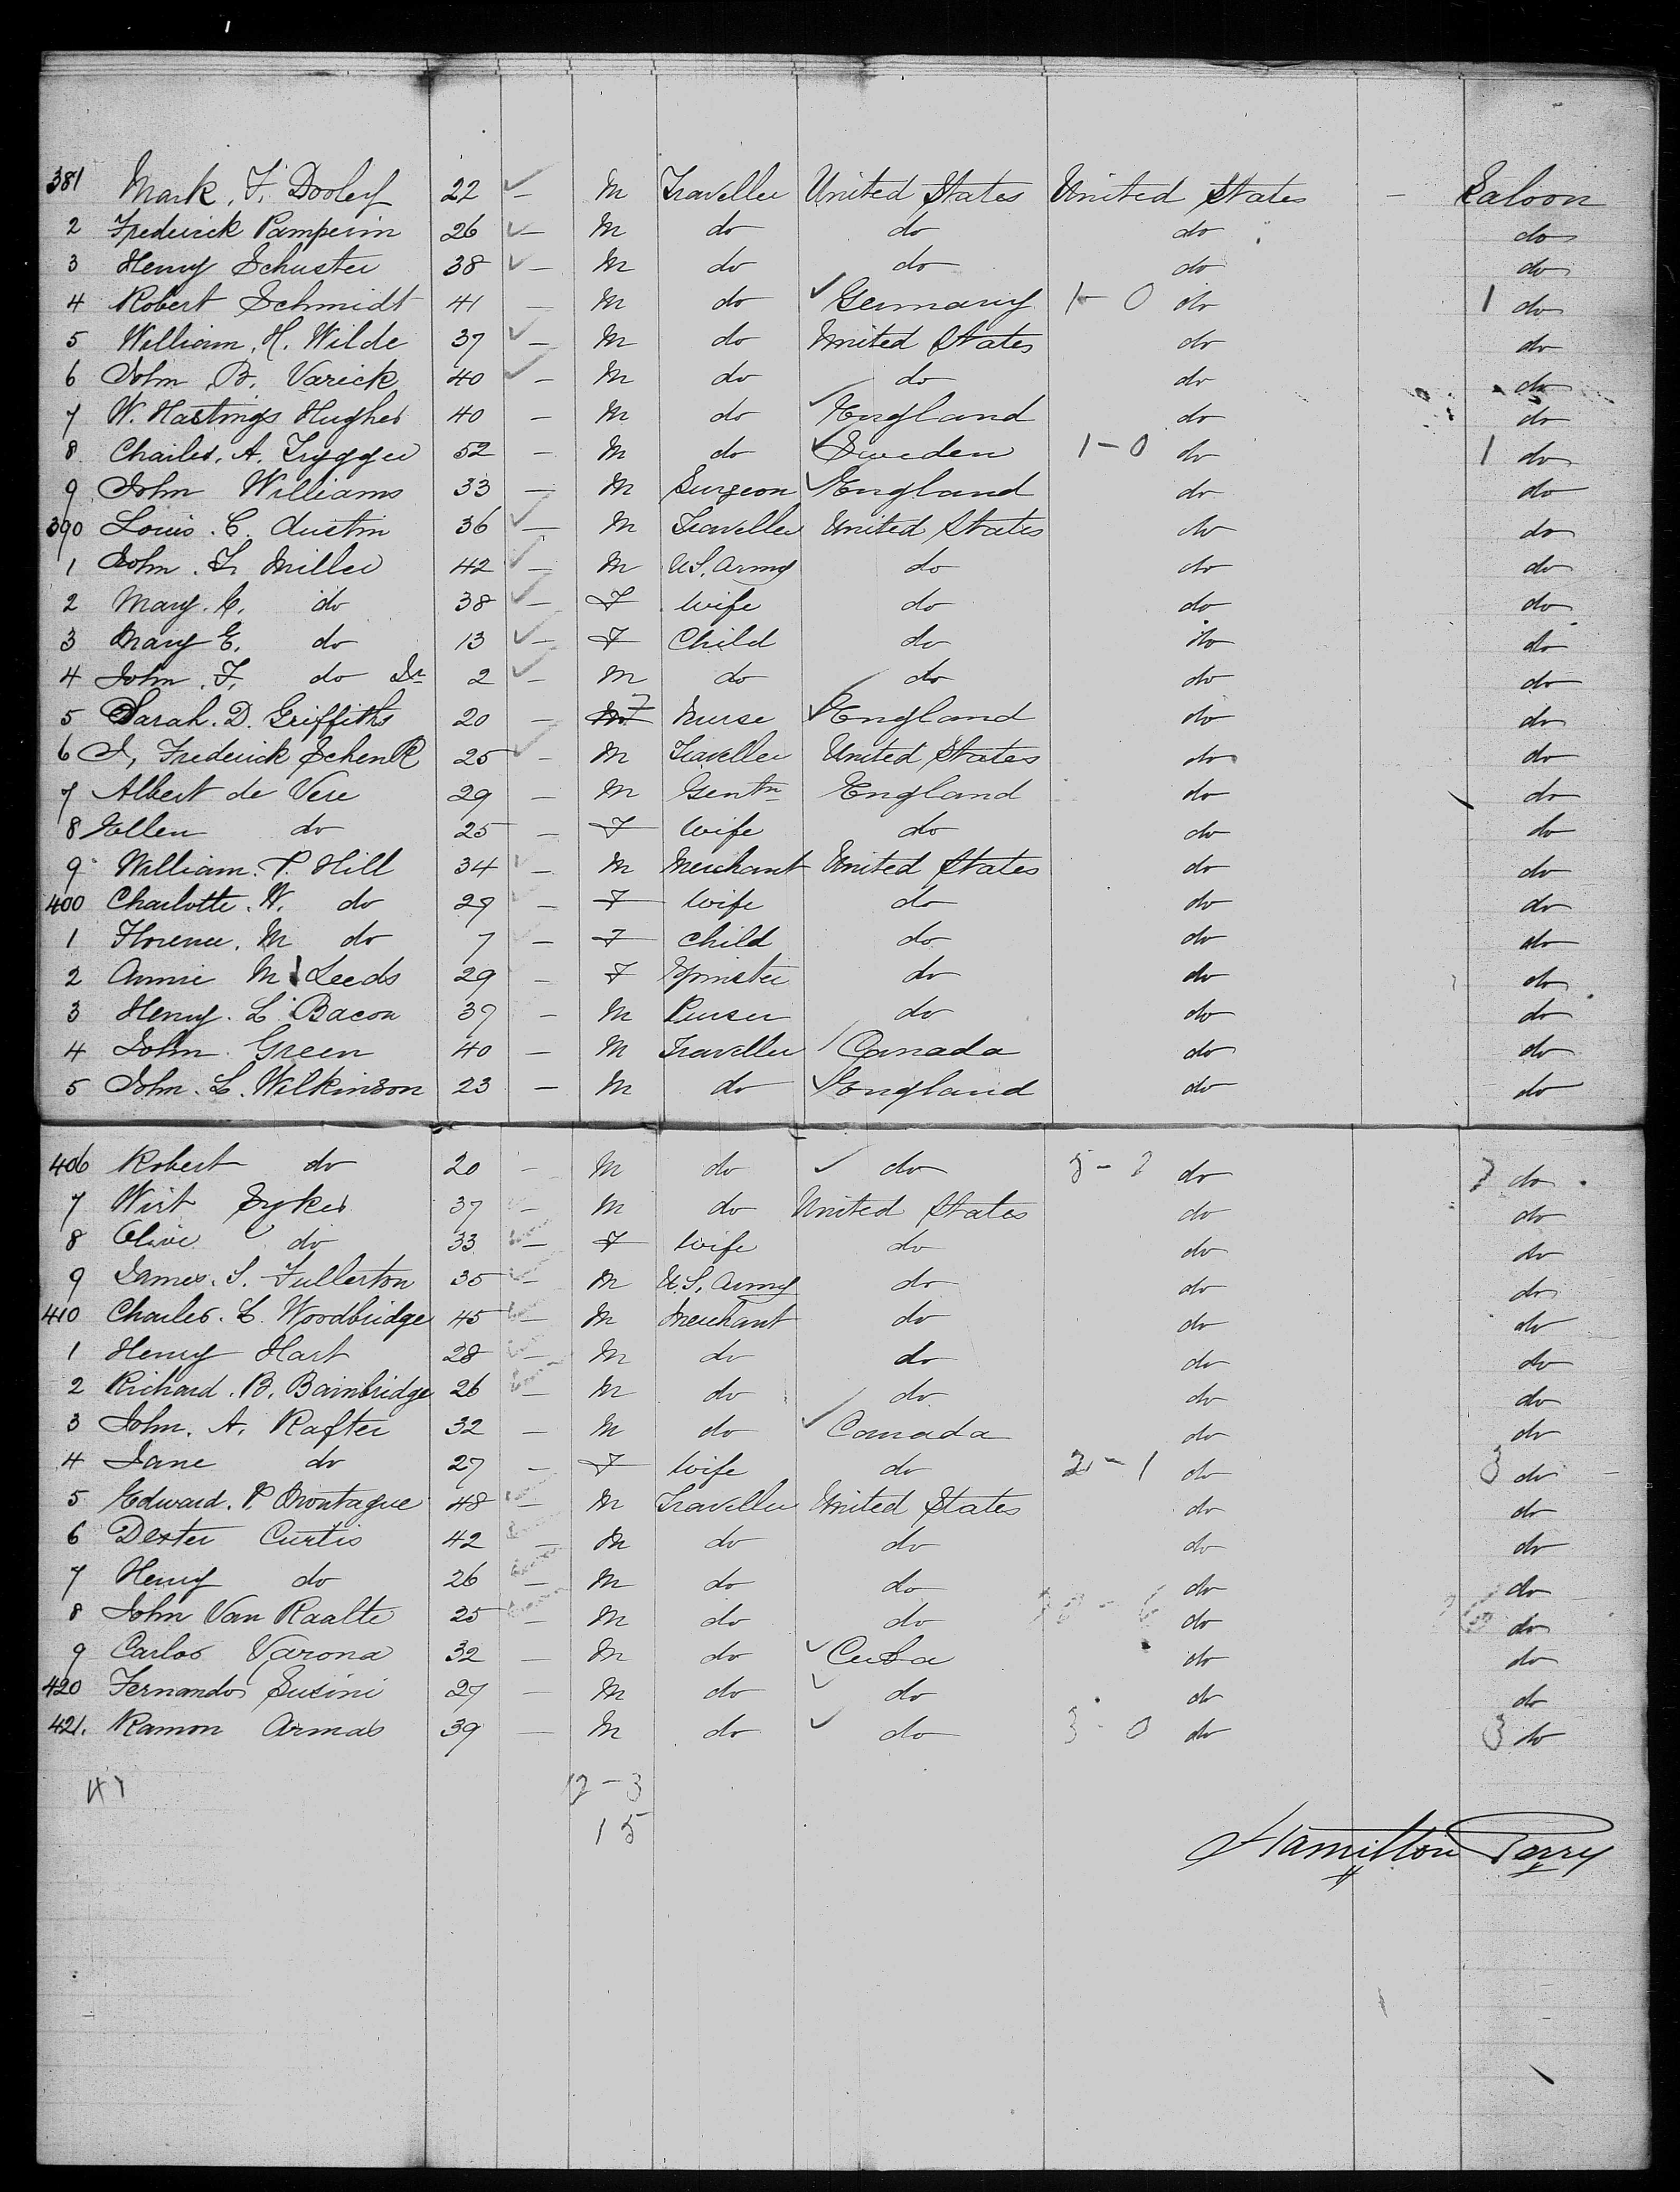 381 Mark. F. Dooley 22 ✓ - M Traveller United States United States - Saloon
2 Frederick Pamperin 26 ✓ - M do do do do
3 Henry Schuster 38 ✓ - M do do do do
4 Robert Schmidt 41 - M do ✓ Germany 1 - 0 do 1 do
5 William. H. Wilde 37 ✓ - M do United States do do
6 John. B. Varick 40 ✓ - M do do do do
7 W. Hastings Hughes 40 - M do ✓ England do do
8 Charles. A. Trygger 52 - M do ✓ Sweden 1 - 0 do 1 do
9 John Williams 33 - M Surgeon ✓ England do do
390 Louis. C. Austin 36 ✓ - M Traveller United States do do
1 John. F. Miller 42 ✓ - M U.S. Army do do do
2 Mary. C. do 38 ✓ - F Wife do do do
3 Mary E. do 13 ✓ - F Child do do do
4 John. F. do Jr 2 ✓ - M do do do do
5 Sarah. D. Griffiths 20 - F Nurse ✓ England do do
6 J, Frederick Schenk 25 ✓ - M Traveller United States do do
7 Albert de Vere 29 - M Gentn England do do
8 Ellen do 25 - F Wife do do do
9 William. P. Hill 34 - M Merchant United States do do
400 Charlotte. W. do 29 - F Wife do do do
1 Florence. M do 7 - F Child do do do
2 Annie M Leeds 29 - F Spinster do do do
3 Henry. L. Bacon 39 - M Purser do do do
4 John. Green 40 - M Traveller Canada do do
5 John. L. Wilkinson 23 - M do ✓ England do do
406 Robert do 20 - M do ✓ do 5 - 2 do 7 do
7 Wirt Sykes 37 - M do United States do do
8 Olive do 33 - F Wife do do do
9 James. S. Fullerton 35 - M U.S. Army do do do
410 Charles. L. Woodbridge 45 - M Merchant do do do
1 Henry Hart 28 - M do do do do
2 Richard. B. Bainbridge 26 - M do do do do
3 John. A. Rafter 32 - M do ✓ Canada do do
4 Jane do 27 - F Wife do 2 - 1 do 3 do
5 Edward. P. Montague 48 - M Traveller United States do do
6 Dexter Curtis 42 - M do do do do
7 Henry do 26 - M do do do do
8 John Van Raalte 25 - M do do do do
9 Carlos Varona 32 - M do ✓ Cuba do do
420 Fernando Susini 27 - M do ✓ do do do
421. Ramon Armas 39 - M do ✓ do 3 - 0 do 3 do
41 12 - 3
15
Hamilton Perry